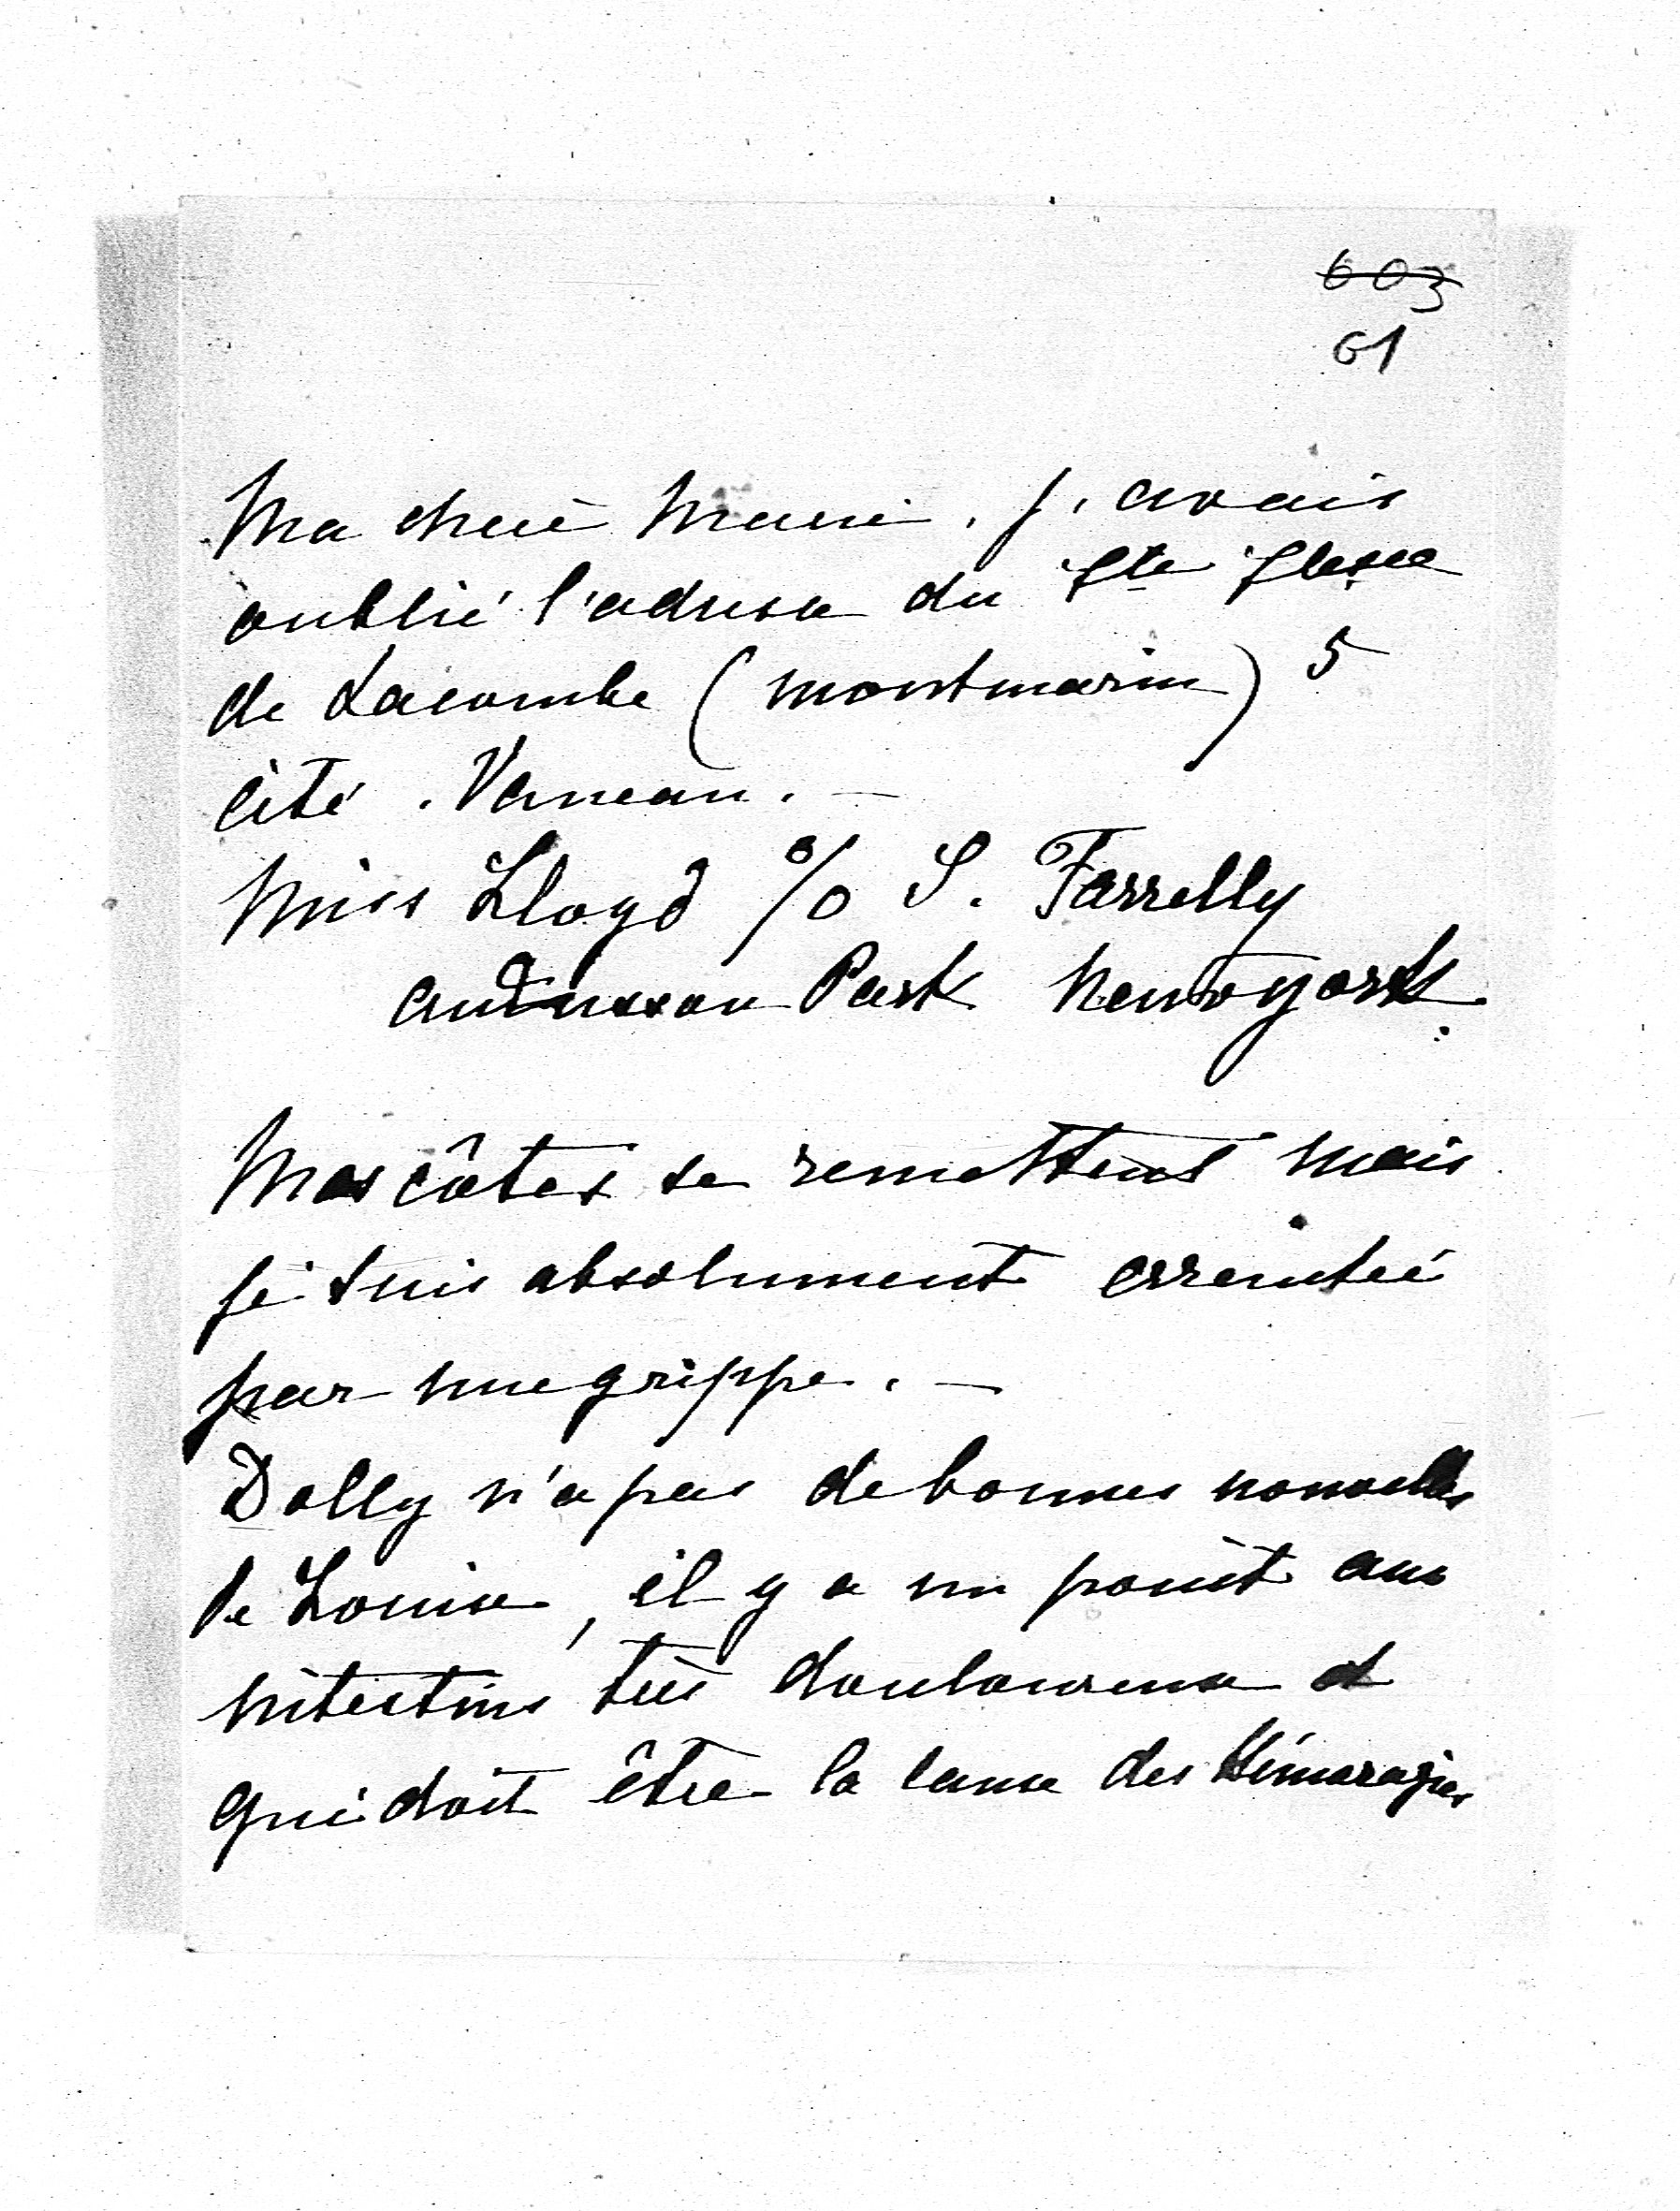 603
61
Ma chère Marie. j'avais
oublié l'adresse du Cte
de Lacombe (montmarin) 5
cité. Vaneau. —
Miss Lloyd %o S. Farrelly
Park New york
Mes côtes se remettent mais
je suis absolument erreintée
par une grippe. —
Dolly n'a pas de bonnes nouvelles
de Louise, il y a un point aux
intestins très douloureux et
qui doit être la cause des Hémoragies